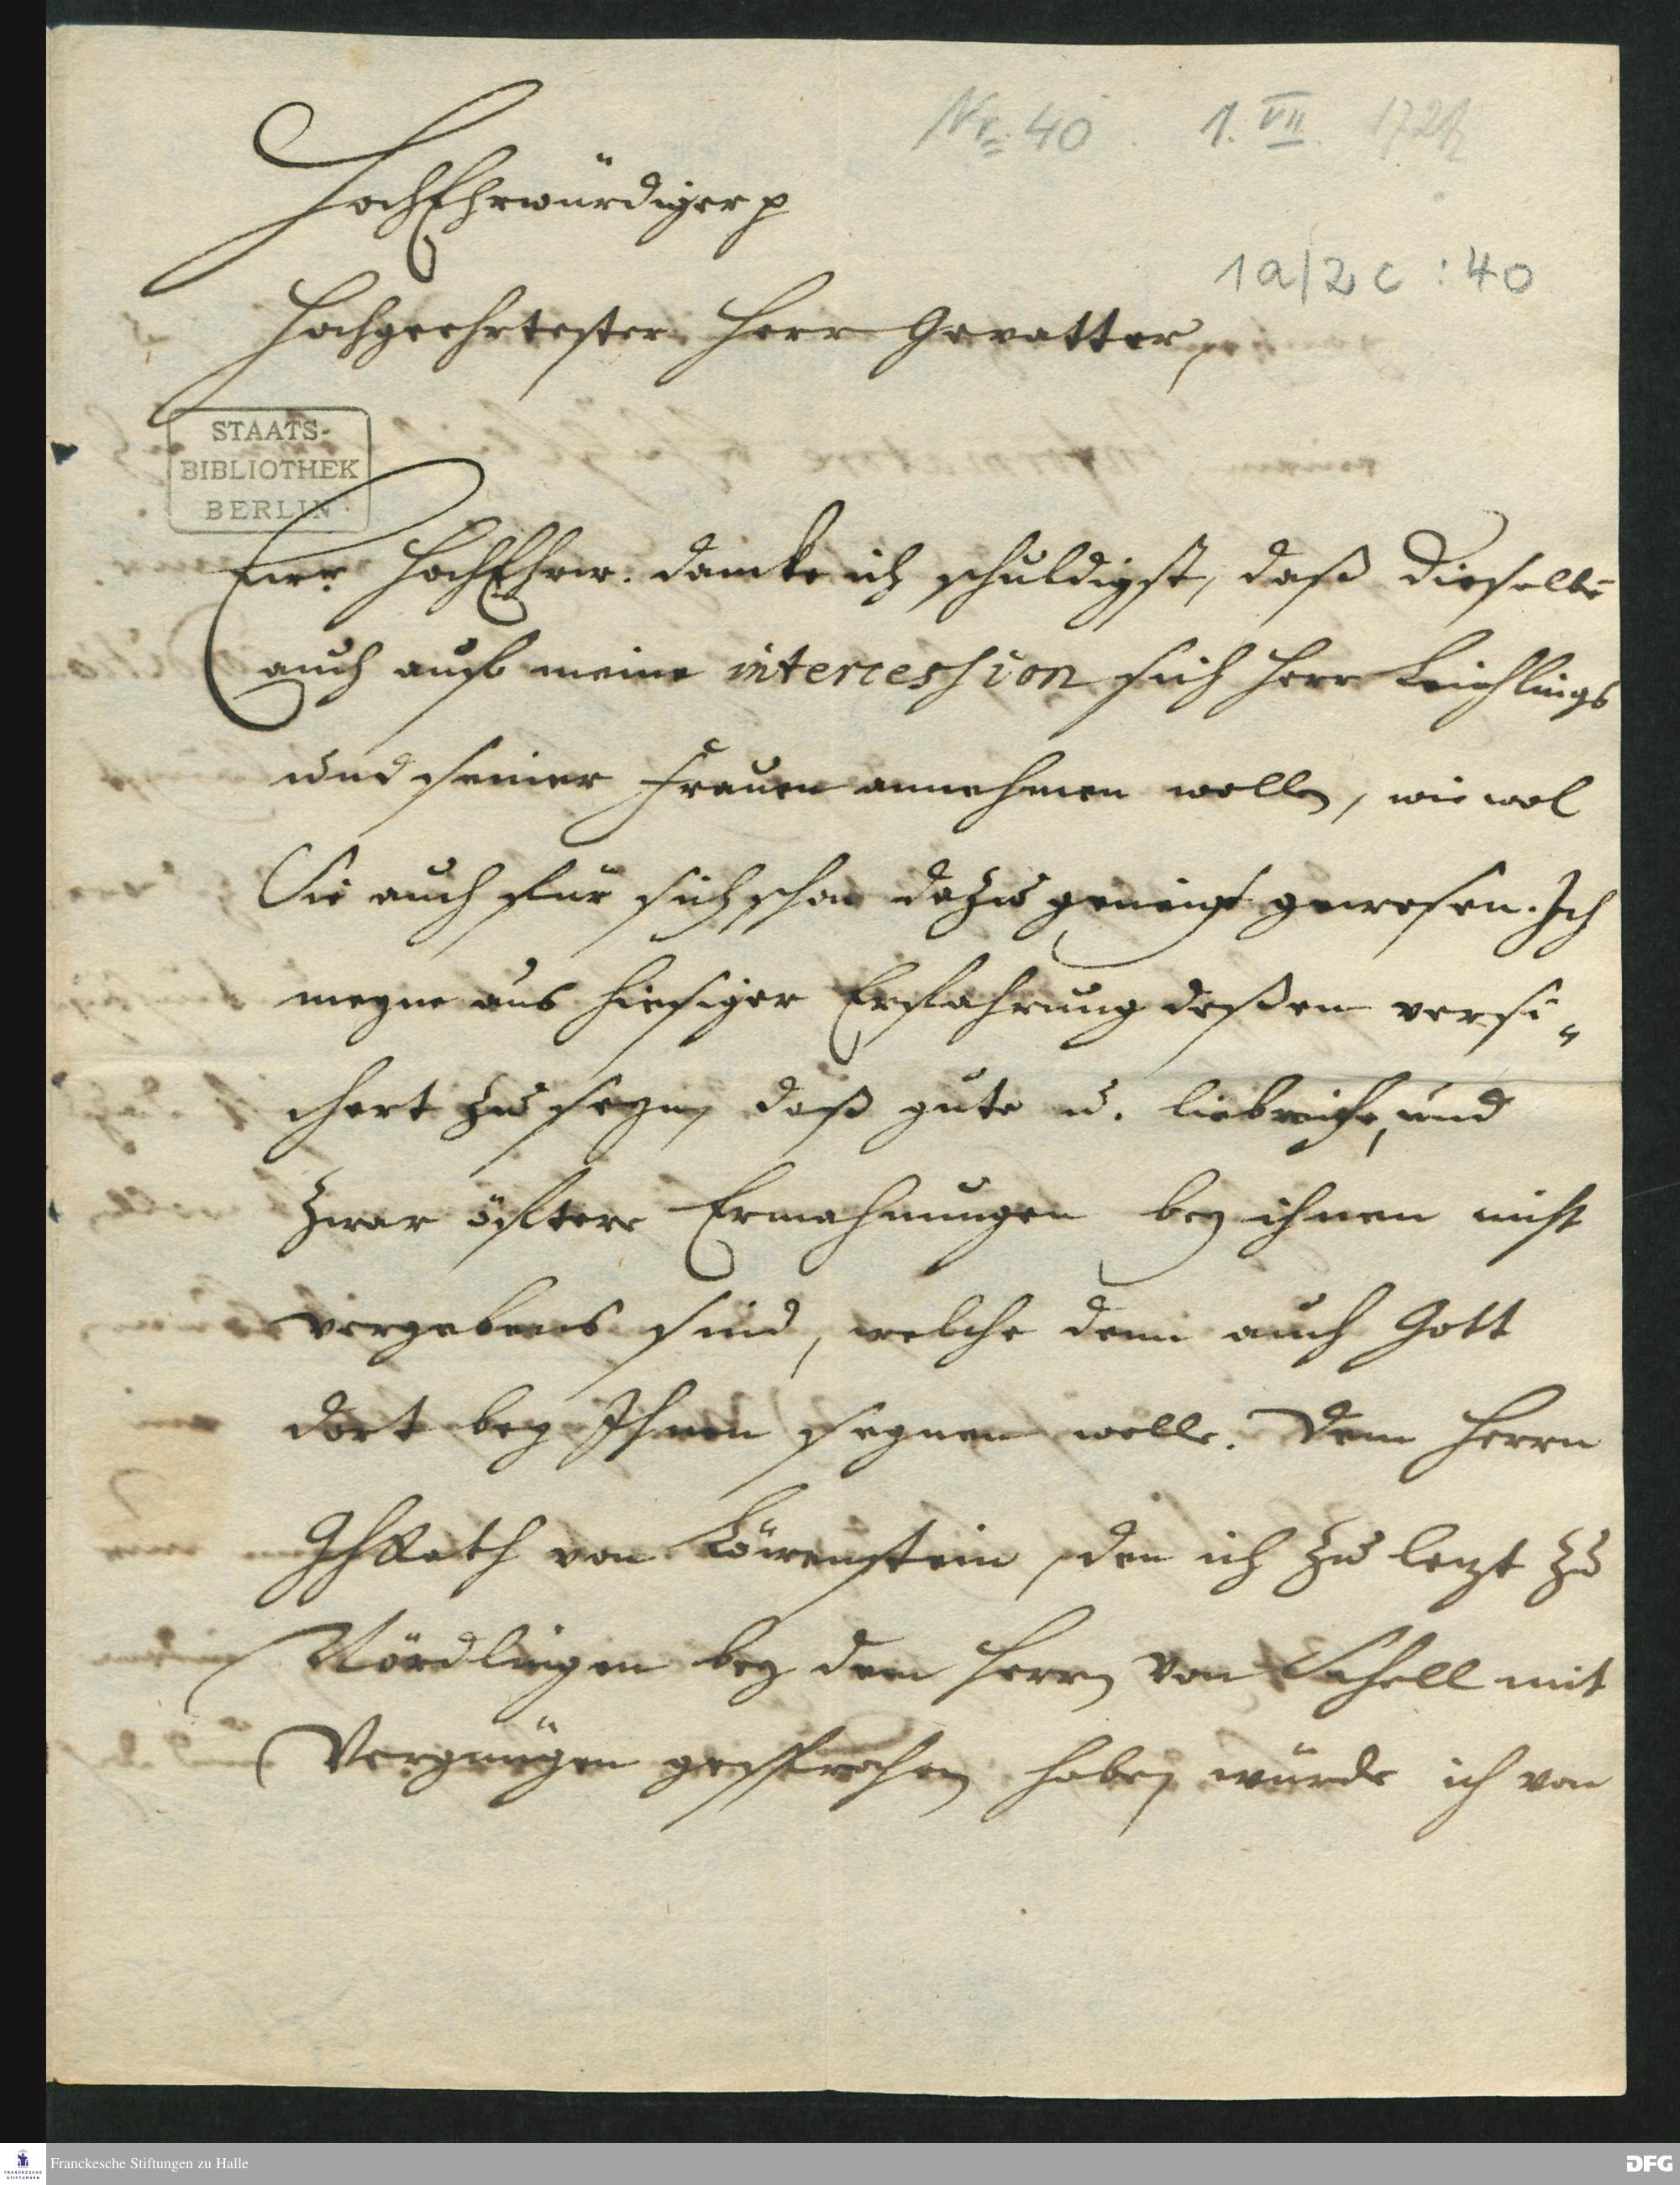 Nr. 40. 1. VII. 172
HochEhrwürdiger p
1a/2c : 40
Hochgeehrtester Herr Gevatter,
STAATS-
BIBLIOTHEK
BERLIN
Ewr. HochEhrw. dancke ich schuldigst, daß dieselbe
auch auf meine intercession sich Herr Leichlings
und seiner Frauen annehmen wollen, wie wol
Sie auch für sich schon dazu geneigt gewesen. Ich
meyne aus hiesiger Erfahrung deßen versi„
chert zu seyn, daß gute u. liebreiche, und
zwar öftere Ermahnungen bey ihnen nicht
vergebens sind, welche denn auch Gott
dort bey Ihnen segnen wolle. Dem Herrn
GhRath von Löwenstein, den ich zu letzt zu
Nördlingen bey dem Herrn von Schell mit
Vergnügen gesprochen haben würde ich von
Franckesche Stiftungen zu Halle
DFG